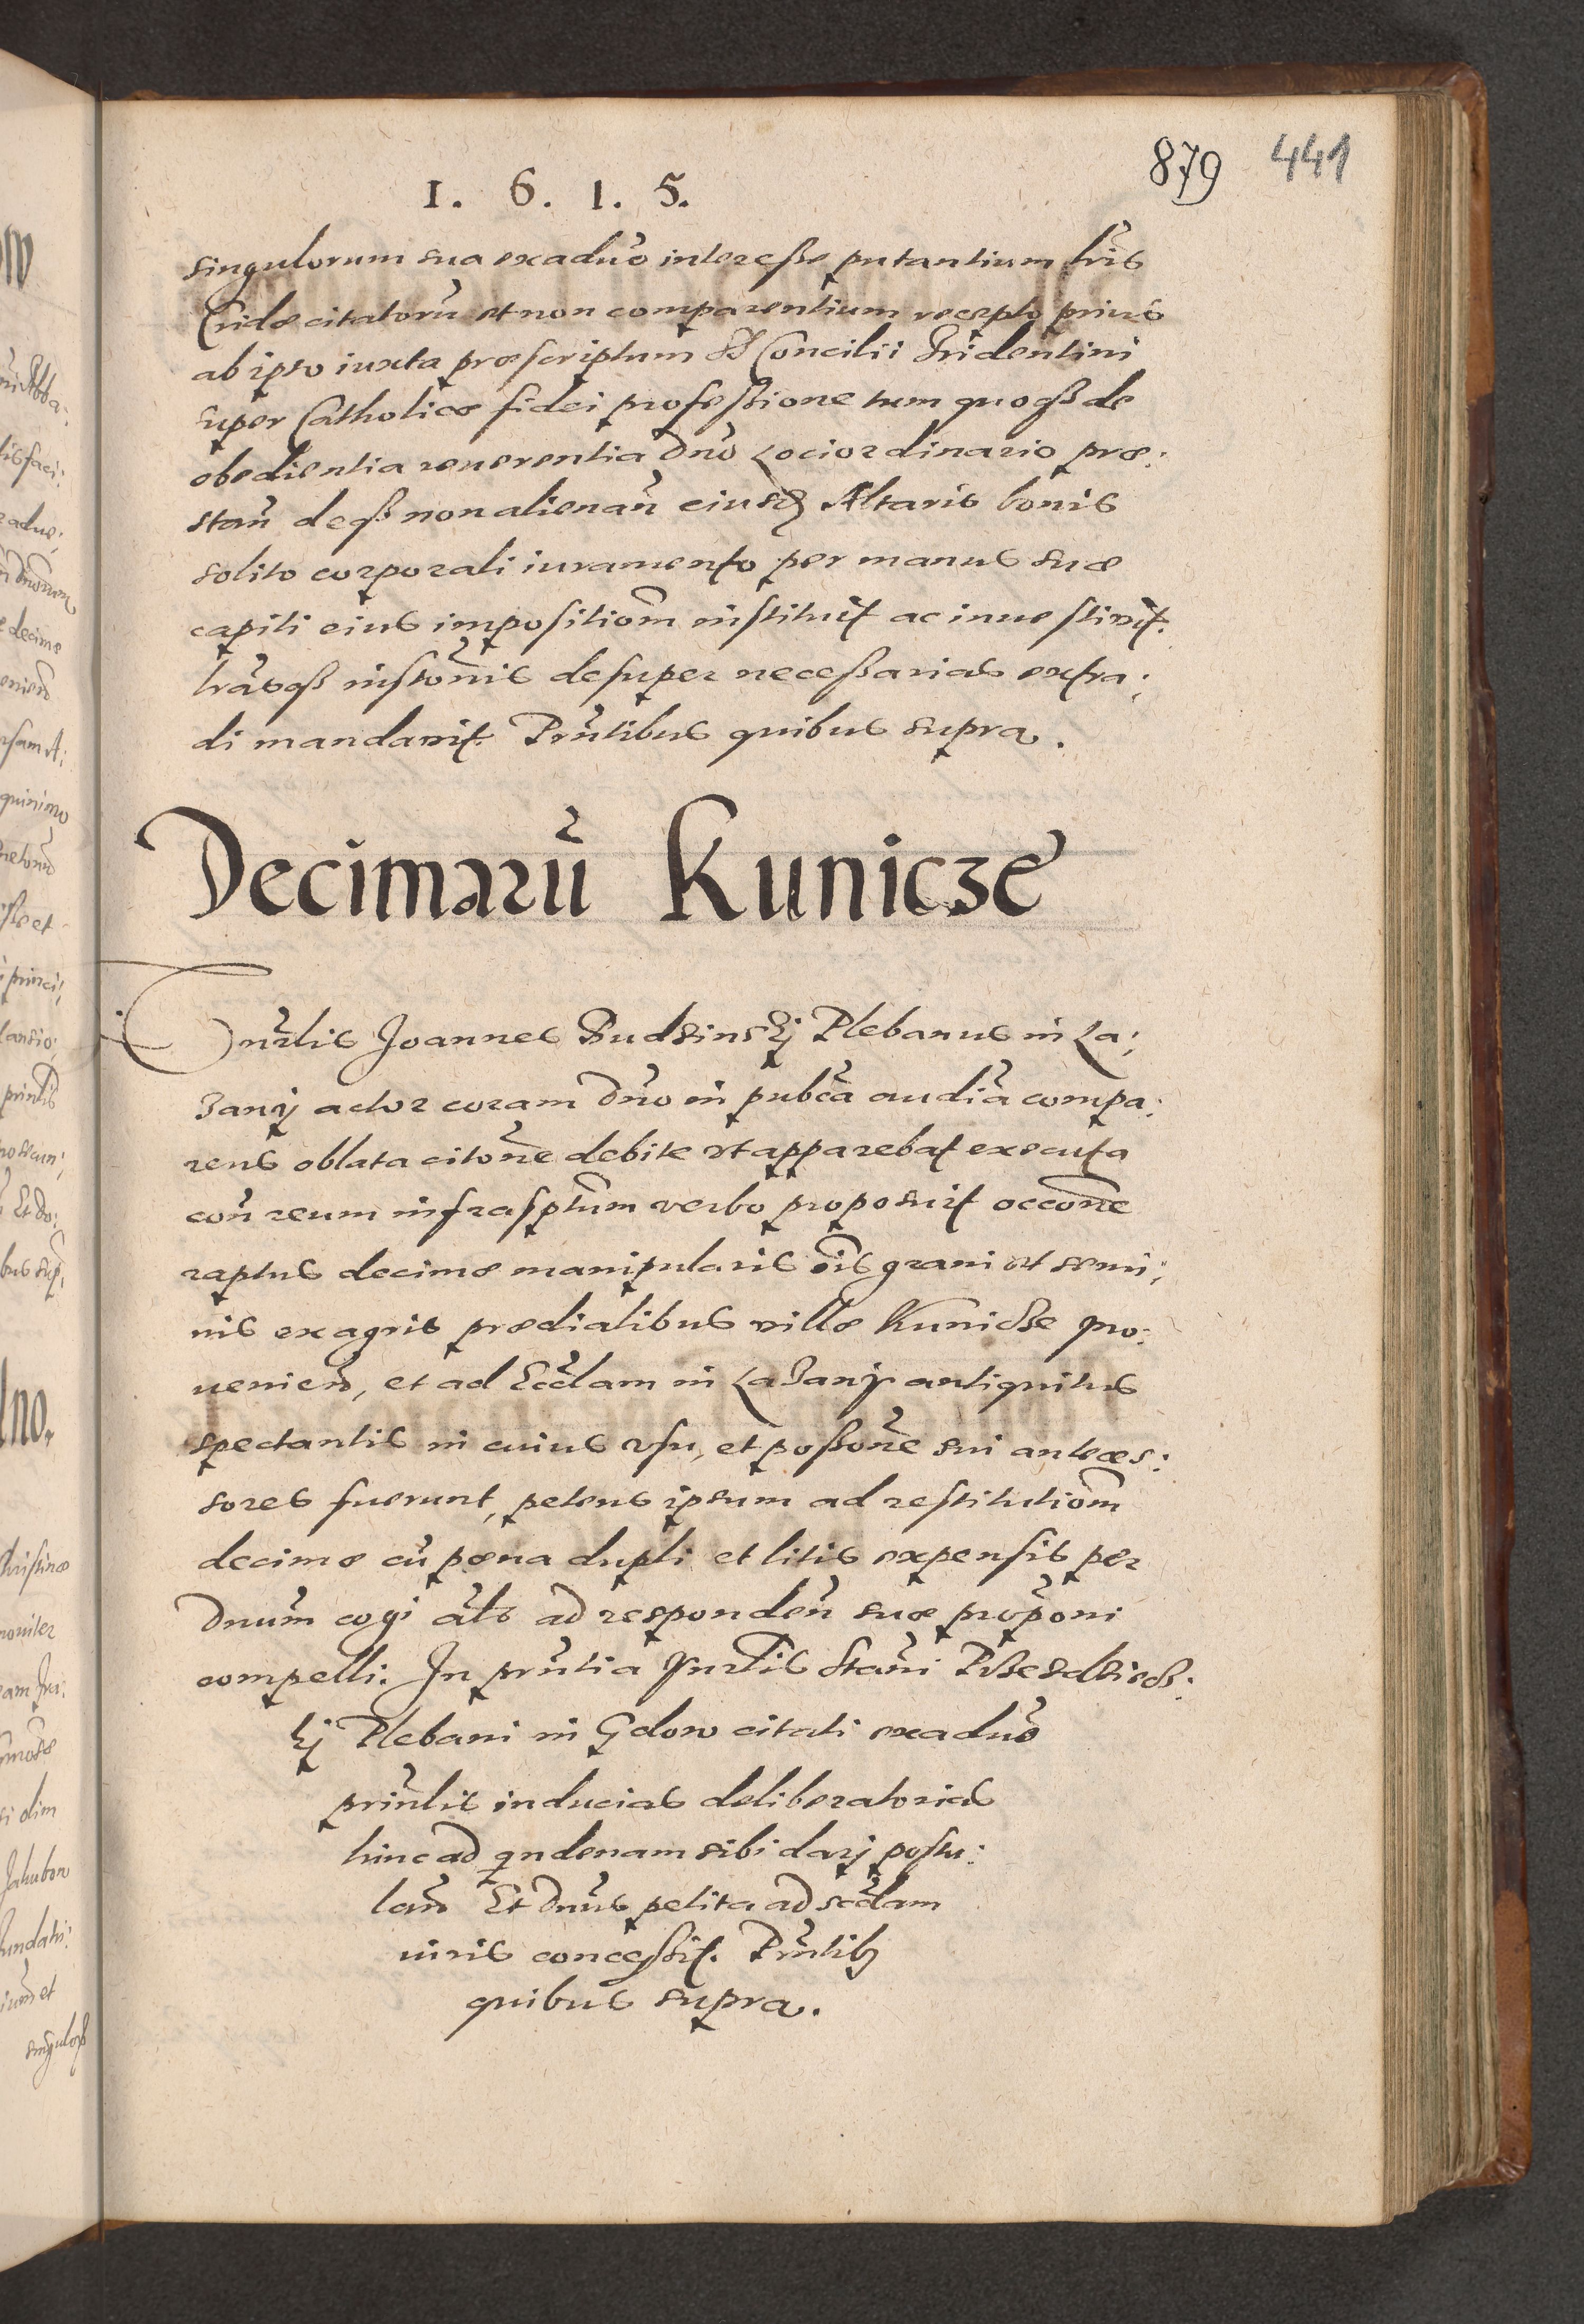 879 441
1. 6. 1. 5.
singulorum sua ex aduo interesse putantium lris
Cridae citatorũ et non comparentium recepto prius
ab ipso iuxta praescriptum S Concilii Tridentini
super Catholicae fidei professione tum quoqȝ de
obedientia reuerentia Dno Lociordinario prae:
stan̄ deqȝ non alienan̄ eiusdȝ Altaris bonis
solito corporali iuramento per manus suae
capiti eius impositiom̄ instituit ac inuestiuit.
lrasqȝ instonis desuper necessarias extra:
di mandauit. Pntibus quibus supra.
Decimarũ Kunicze
Onrlis Joannes Budzinskj Plebanus in La:
zanj actor coram Dno in publca audia compa:
rens oblata citone debite ut apparebat executa
con̄ reum infrasptum verbo proposuit occone
raptus decimae manipularis ois grani et semi:
nis ex agris praedialibus villae Kunicze pro:
uenien̄, et ad Eccl̄am in Lazanj antiquitus
spectantis in cuius vsu, et possone sui anteces:
sores fuerunt, petens ipsum ad restitutiom̄
decimae cũ poena dupli et litis expensis per
Dnum cogi als ad responden̄ suae proponi
compelli. In pntia Hnrlis Stani
kj Plebani in Gdow citati ex aduo
prinlis inducias deliberatorias
hinc ad qndenam sibi darj postu:
lan̄ Et Dnus petita ad secdam
iuris concessit. Pntibȝ
quibus supra.